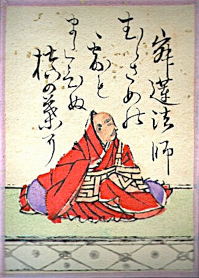 寂蓮法師
むらさめの
露も
まだひぬ
槙の葉に